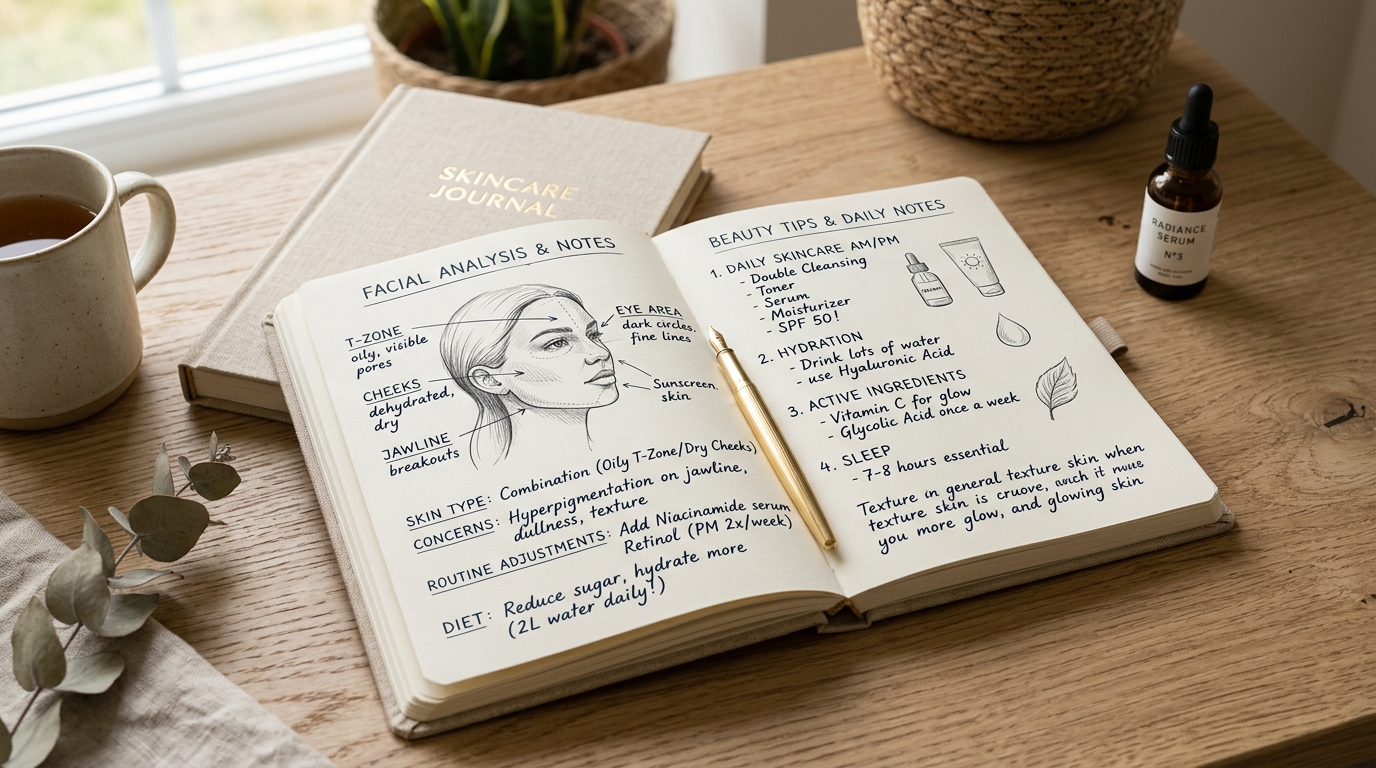 SKINCARE
JOURNAL
FACIAL ANALYSIS & NOTES
T-ZONE
oily, visible
pores
CHEEKS
dehydrated,
dry
JAWLINE
breakouts
EYE AREA
dark circles.
fine lines
Sunscreen,
skin
SKIN TYPE: Combination (Oily T-Zone/Dry Cheeks)
CONCERNS: Hyperpigmentation on jawline,
dullness, texture
ROUTINE ADJUSTMENTS: Add Niacinamide serum
Retinol (PM 2x/week)
DIET: Reduce sugar, hydrate more
(2L water daily!)
BEAUTY TIPS & DAILY NOTES
1. DAILY SKINCARE AM/PM
- Double Cleansing
- Toner
- Serum
- Moisturizer
- SPF 50!
2. HYDRATION
- Drink lots of water
- use Hyaluronic Acid
3. ACTIVE INGREDIENTS
- Vitamin C for glow
- Glycolic Acid once a week
4. SLEEP
- 7-8 hours essential
Texture in general texture skin when
texture skin is it
you more glow, and glowing skin
RADIANCE
SERUM
Nº3